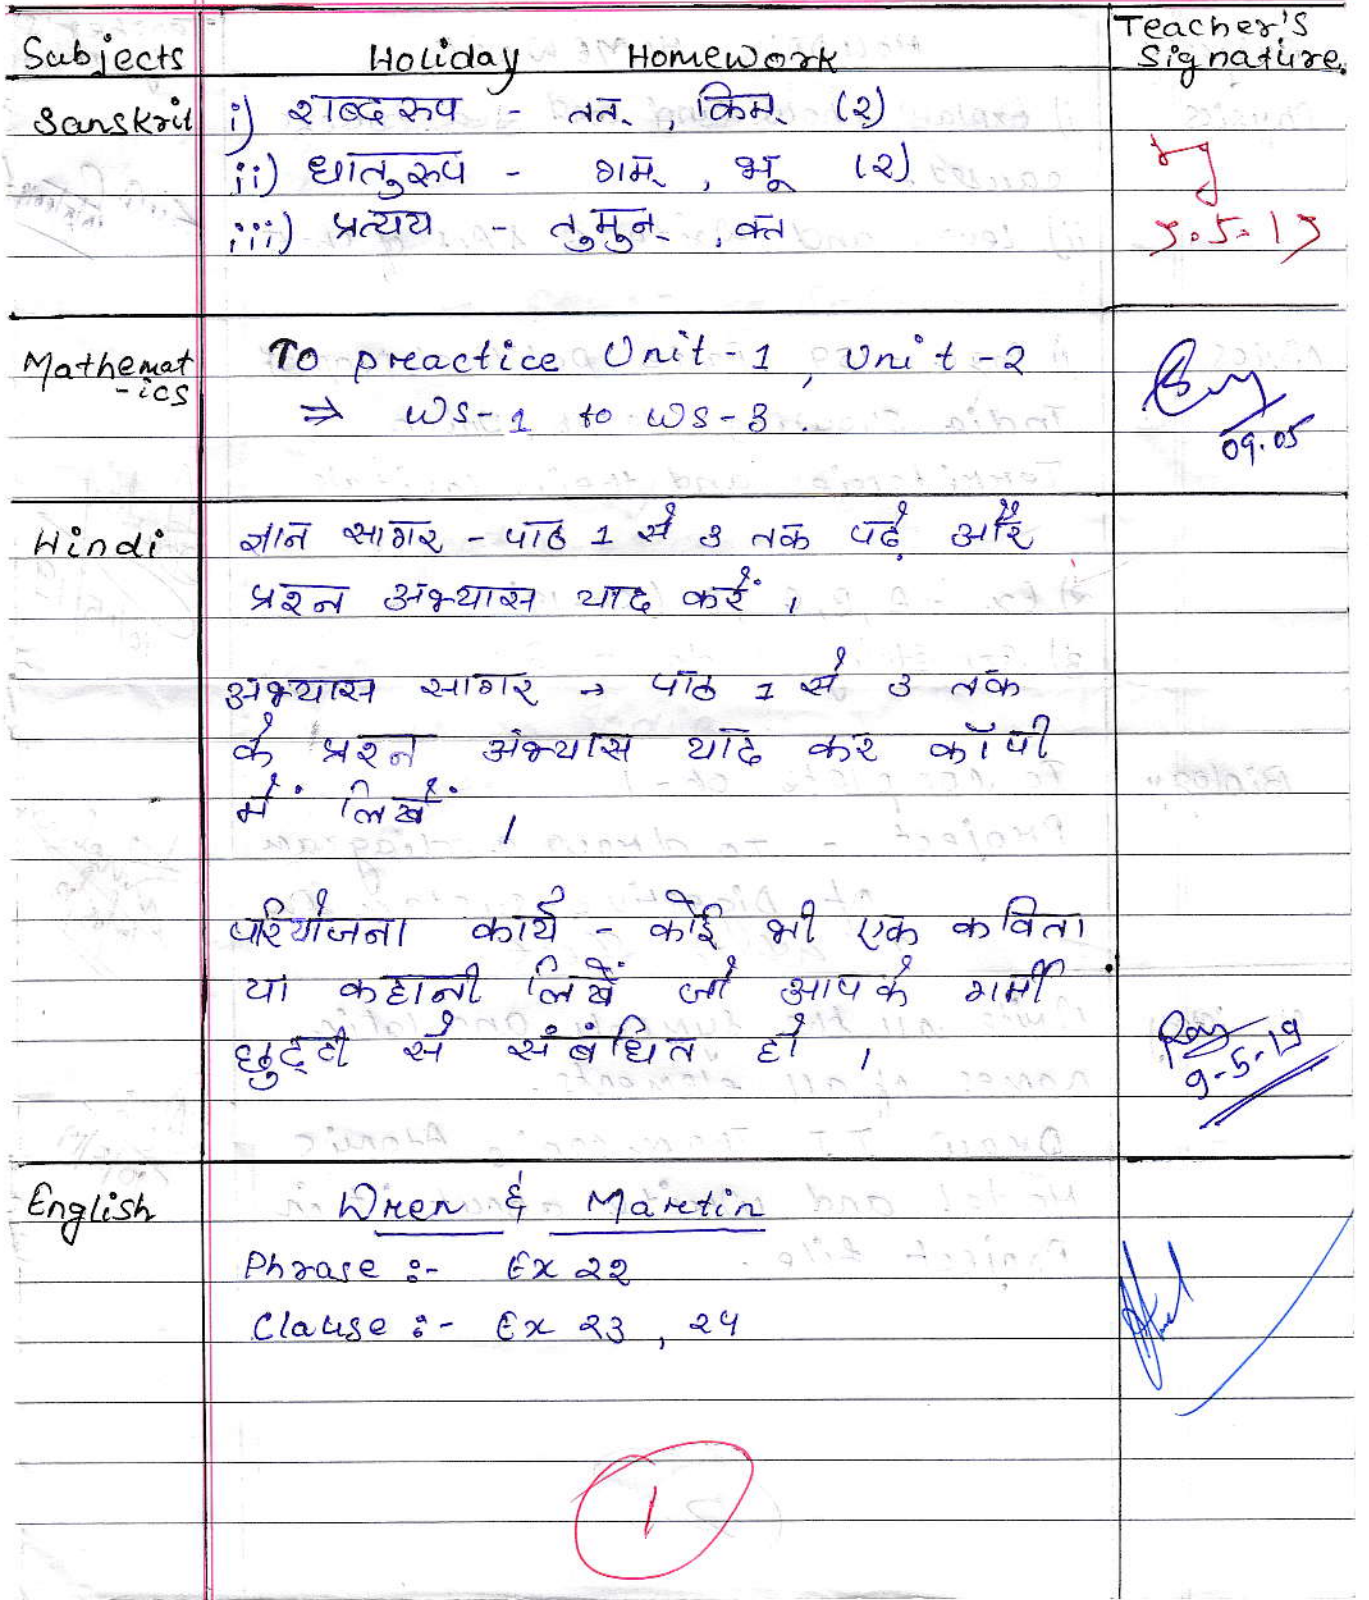 Subjects Holiday Homework Teacher's Signature.
Sanskrit i) शब्द रुप - तत्, किम् (२)
ii) धातुरुप - गम्, भू (२)
iii) प्रत्यय - तुमुन्, क्त
9.5.19
Mathemat To preactice Unit-1, Unit-2
-ics ⇒ WS-1 to WS-3.
09.05
Hindi ज्ञान सागर - पाठ 1 से 3 तक पढ़ें और
प्रश्न अभ्यास याद करें।
अभ्यास सागर → पाठ 1 से 3 तक
के प्रश्न अभ्यास याद कर कॉपी
में लिखें।
परियोजना कार्य - कोई भी एक कविता
या कहानी लिखें जो आपके गर्मी
छुट्टी से संबंधित हो।
9-5-19
English Wren & Martin
Phrase :- Ex 22
Clause :- Ex 23, 24
1